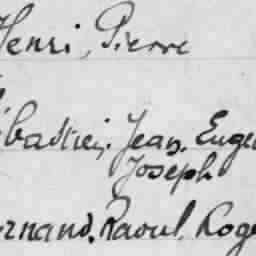 Henri, Pierre
bastien, Jean, Eugè
Joseph
ernand, Raoul, Roge